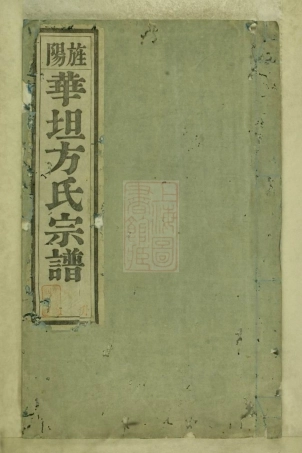 旌陽
華坦方氏宗譜